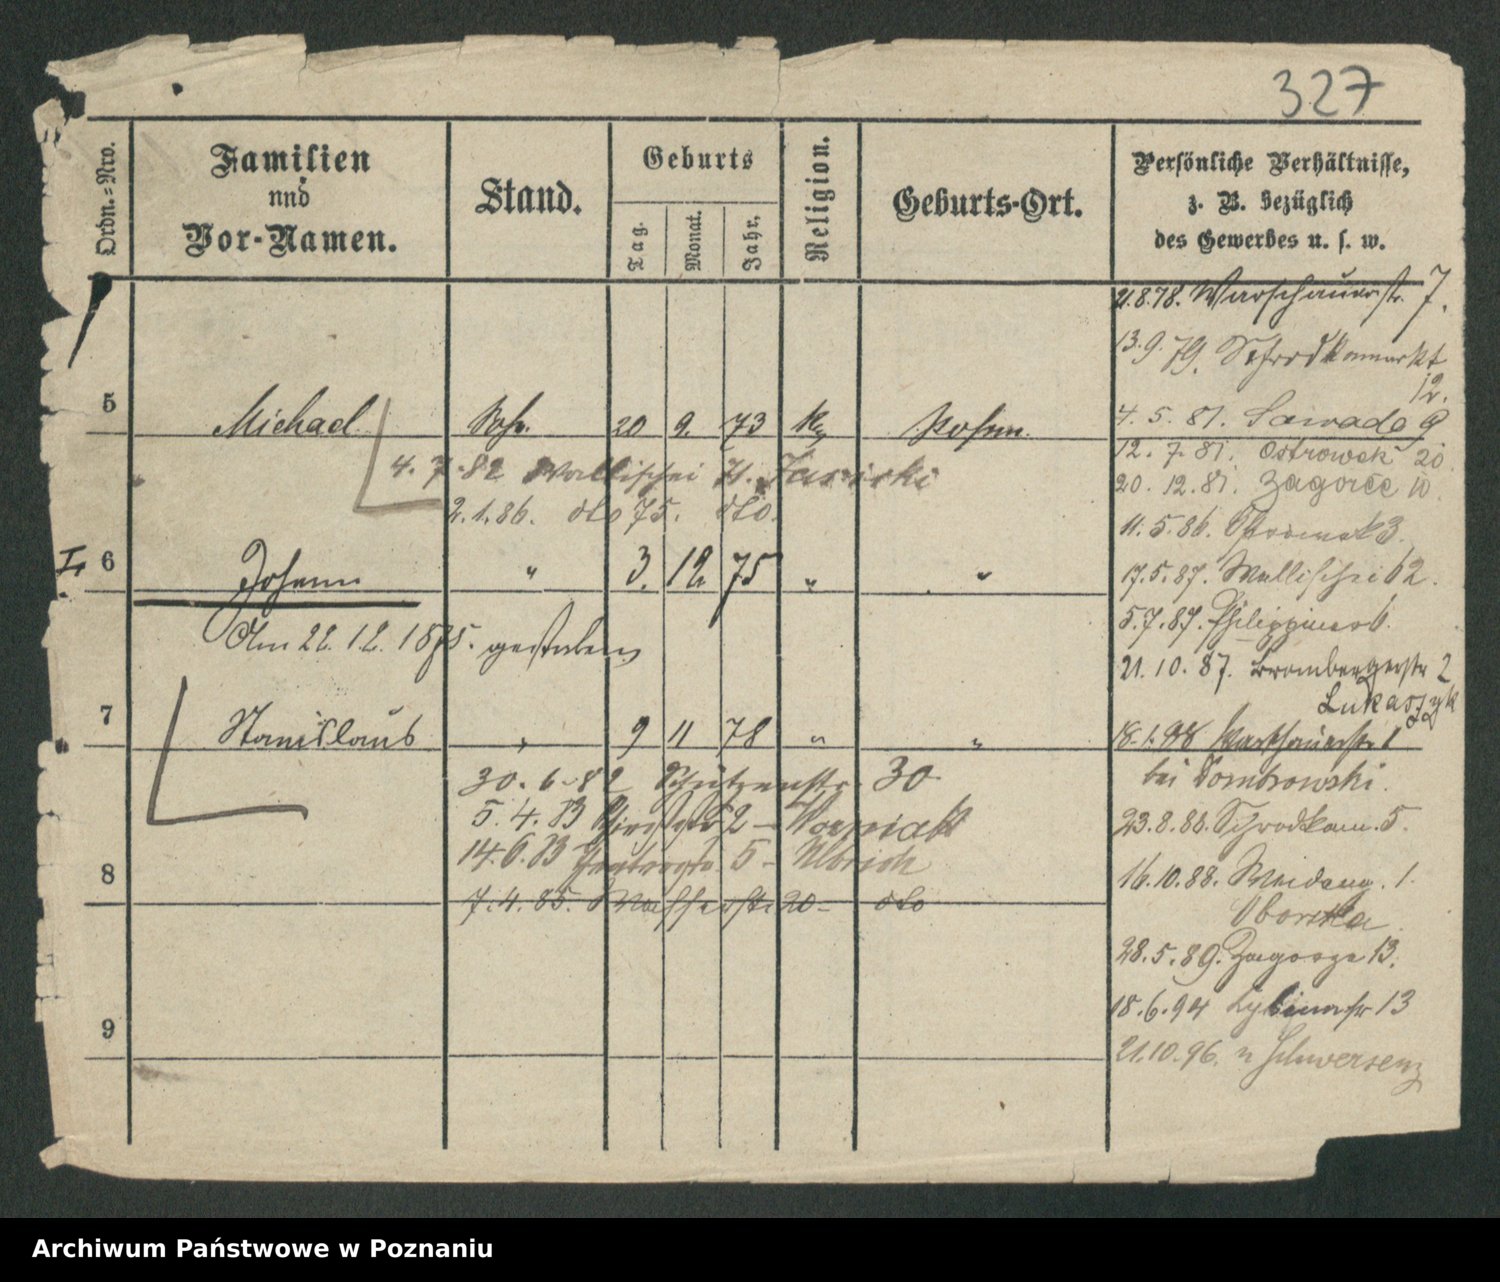 327
Ordn.=Nro.
Familien
und
Vor-Namen.
Stand.
Geburts
Tag. Monat. Jahr.
Religion.
Geburts-Ort.
Persönliche Verhältnisse,
z. B. bezüglich
des Gewerbes u. s. w.
21.8.78. Warschauerstr. 7.
13.9.79. Schrodkamarkt
12.
5 Michael Sohn 20 9. 73 Posen.
4. 5. 81. Zawade 9
12. 7. 81. Ostrowek 20
4. 7. 82 Wallischei Jasinski
20. 12. 81. Zagorze 10.
2.1.86. dto 75. dto.
11.5.86. 3.
6 Johann " 3. 12. 75 " "
17.5.87. Wallischei 62.
Am 22. 12. 1875. gestorben
5.7.87. 6.
21. 10. 87. Brombergerstr 2
Lukaszyk
7 Stanislaus " 9 11 78 " "
18.1.88 Warschauerstr 1
bei Dombrowski.
30. 6. 82 Schützenstr. 30
5. 4. 83 2 - Wozniak
23.8.88. Schrodkam. 5.
14.6.83 5 - Ulbrich
8
16.10.88. 1.
7. 4. 85. 20 - dto
28.5.89. Zagorze 13.
18.6.94 13
9
21.10.96. n Schwersenz
Archiwum Państwowe w Poznaniu